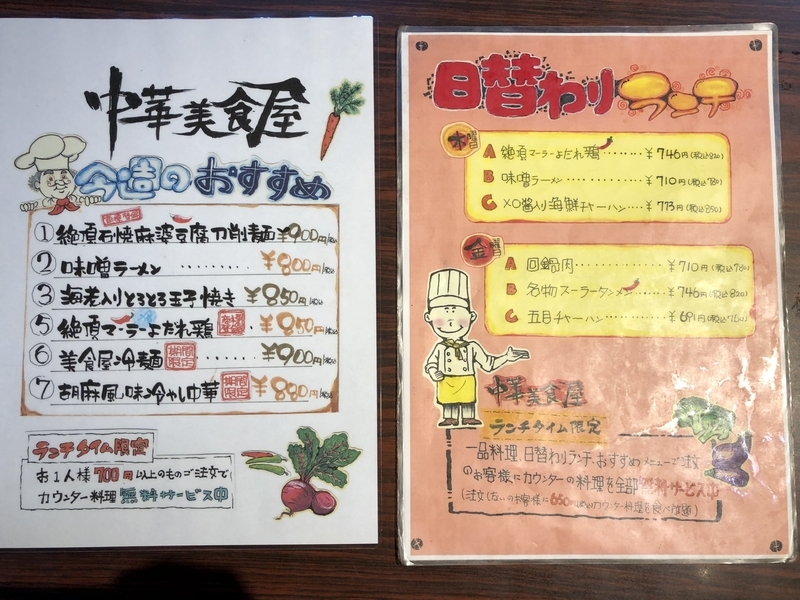 中華美食屋
今週のおすすめ
①絶頂石焼麻婆豆腐刀削麺 ¥900円/税込
②味噌ラーメン ・・・・・・・・・ ¥800円/税込
③海老入りとろとろ玉子焼き ¥850円/税込
⑤絶頂マーラーよだれ鶏 ¥850円/税込
⑥美食屋冷麺 期間限定 ・・・・・ ¥900円/税込
⑦胡麻風味冷やし中華 期間限定 ¥880円/税込
ランチタイム限定
お1人様700円以上のものご注文で
カウンター料理無料サービス中
日替わりランチ
木曜日
A 絶頂マーラーよだれ鶏・・・・・・・・¥746円(税込820)
B 味噌ラーメン・・・・・・・・・・・¥710円(税込780)
C XO醤入り海鮮チャーハン・・・・¥773円(税込850)
金曜日
A 回鍋肉・・・・・・・・・・・・・・¥710円(税込780)
B 名物スーラータンメン・・・・・¥746円(税込820)
C 五目チャーハン・・・・・・・・・¥691円(税込760)
中華美食屋
ランチタイム限定
一品料理、日替わりランチ、おすすめメニューご注文
のお客様にカウンターの料理を全部無料サービス中
カウンター料理を食べ放題)